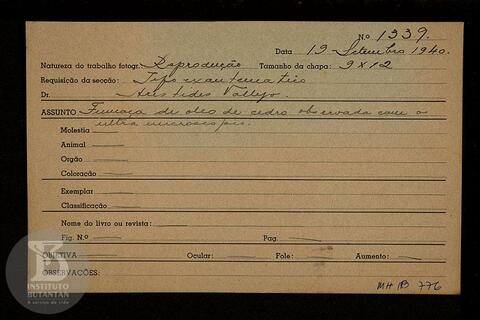 N.o 1339.
Data 19-Setembro 1940.
Natureza do trabalho fotogr. Reprodução Tamanho da chapa: 9X12
Requisição da secção: Tifo exantematico
Dr. Aristides Vallejo.
ASSUNTO Fumaça de oleo de cedro observada com o
ultra microscopio.
Molestia
Animal
Orgão
Coloração
Exemplar
Classificação
Nome do livro ou revista:
Fig. N.o Pag.
OBJETIVA Ocular: Fole: Aumento:
OBSERVAÇÕES:
MH IB 776
INSTITUTO
BUTANTAN
A serviço da vida